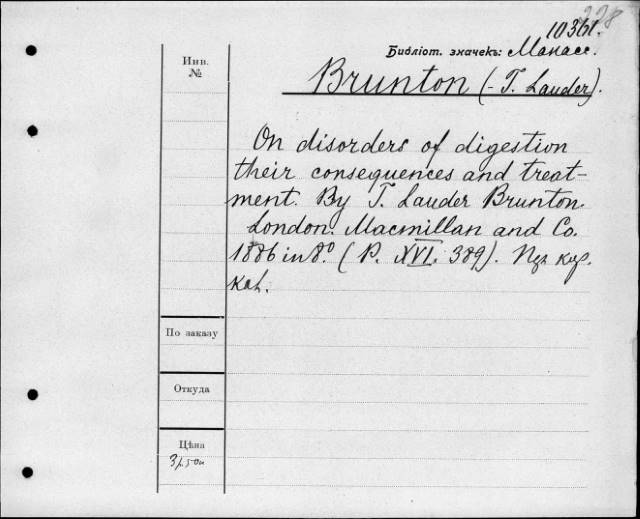 228
10361.
Библіот. значекъ: Манасс.
Инв.
№
Brunton (- T. Lauder).
On disorders of digestion
their consequences and treat-
ment. By T. Lauder Brunton.
London. Macmillan and Co.
1886 in 8.º (P. XVI. 389). Изд. кор.
кол.
По заказу
Откуда
Цѣна
3 р. 50 к